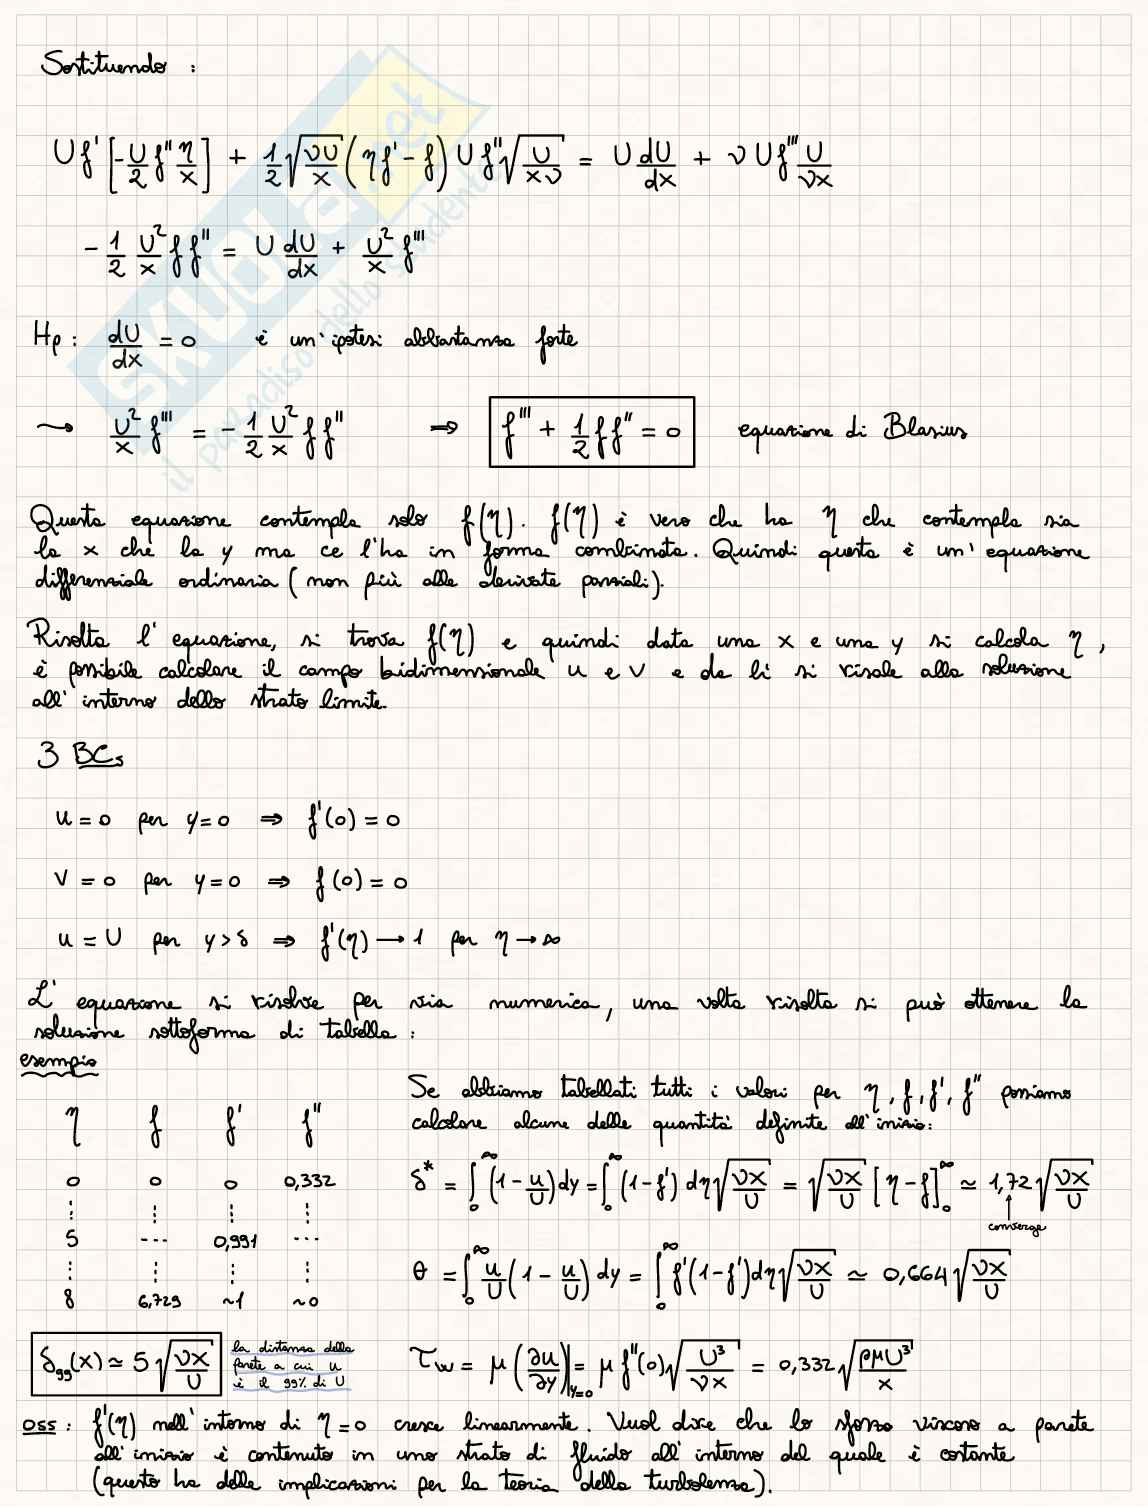 Sostituendo :
U f' [-U/2 f'' η/x] + 1/2 √(νU/x) (η f' - f) U f'' √(U/(xν)) = U dU/dx + ν U f''' U/(νx)
- 1/2 U²/x f f'' = U dU/dx + U²/x f'''
Hp : dU/dx = 0 è un'ipotesi abbastanza forte
→ U²/x f''' = - 1/2 U²/x f f'' ⇒ f''' + 1/2 f f'' = 0 equazione di Blasius
Questa equazione contempla solo f(η). f(η) è vero che ha η che contempla sia
la x che la y ma ce l'ha in forma combinata. Quindi questa è un'equazione
differenziale ordinaria (non più alle derivate parziali).
Risolta l'equazione, si trova f(η) e quindi data una x e una y si calcola η,
è possibile calcolare il campo bidimensionale u e v e da lì si risale alla soluzione
all'interno dello strato limite.
3 BCs
u = 0 per y = 0 ⇒ f'(0) = 0
v = 0 per y = 0 ⇒ f(0) = 0
u = U per y > δ ⇒ f'(η) → 1 per η → ∞
L'equazione si risolve per via numerica, una volta risolta si può ottenere la
soluzione sottoforma di tabella :
esempio
η f f' f''
0 0 0 0,332
⋮ ⋮ ⋮ ⋮
5 --- 0,991 ---
⋮ ⋮ ⋮ ⋮
8 6,729 ~1 ~0
Se abbiamo tabellati tutti i valori per η, f, f', f'' possiamo
calcolare alcune delle quantità definite all'inizio:
δ* = ∫₀^∞ (1 - u/U) dy = ∫₀^∞ (1 - f') dη √(νx/U) = √(νx/U) [η - f]₀^∞ ≃ 1,72 √(νx/U)
converge
θ = ∫₀^∞ u/U (1 - u/U) dy = ∫₀^∞ f'(1 - f') dη √(νx/U) ≃ 0,664 √(νx/U)
δ₉₉(x) ≃ 5 √(νx/U)
la distanza dalla
parete a cui u
è il 99% di U
τw = μ (∂u/∂y)|y=0 = μ f''(0) √(U³/(νx)) = 0,332 √(ρμU³/x)
OSS : f'(η) nell'intorno di η = 0 cresce linearmente. Vuol dire che lo sforzo viscoso a parete
all'inizio è contenuto in uno strato di fluido all'interno del quale è costante
(questo ha delle implicazioni per la teoria della turbolenza).
SKUOLA.net
il paradiso dello studente